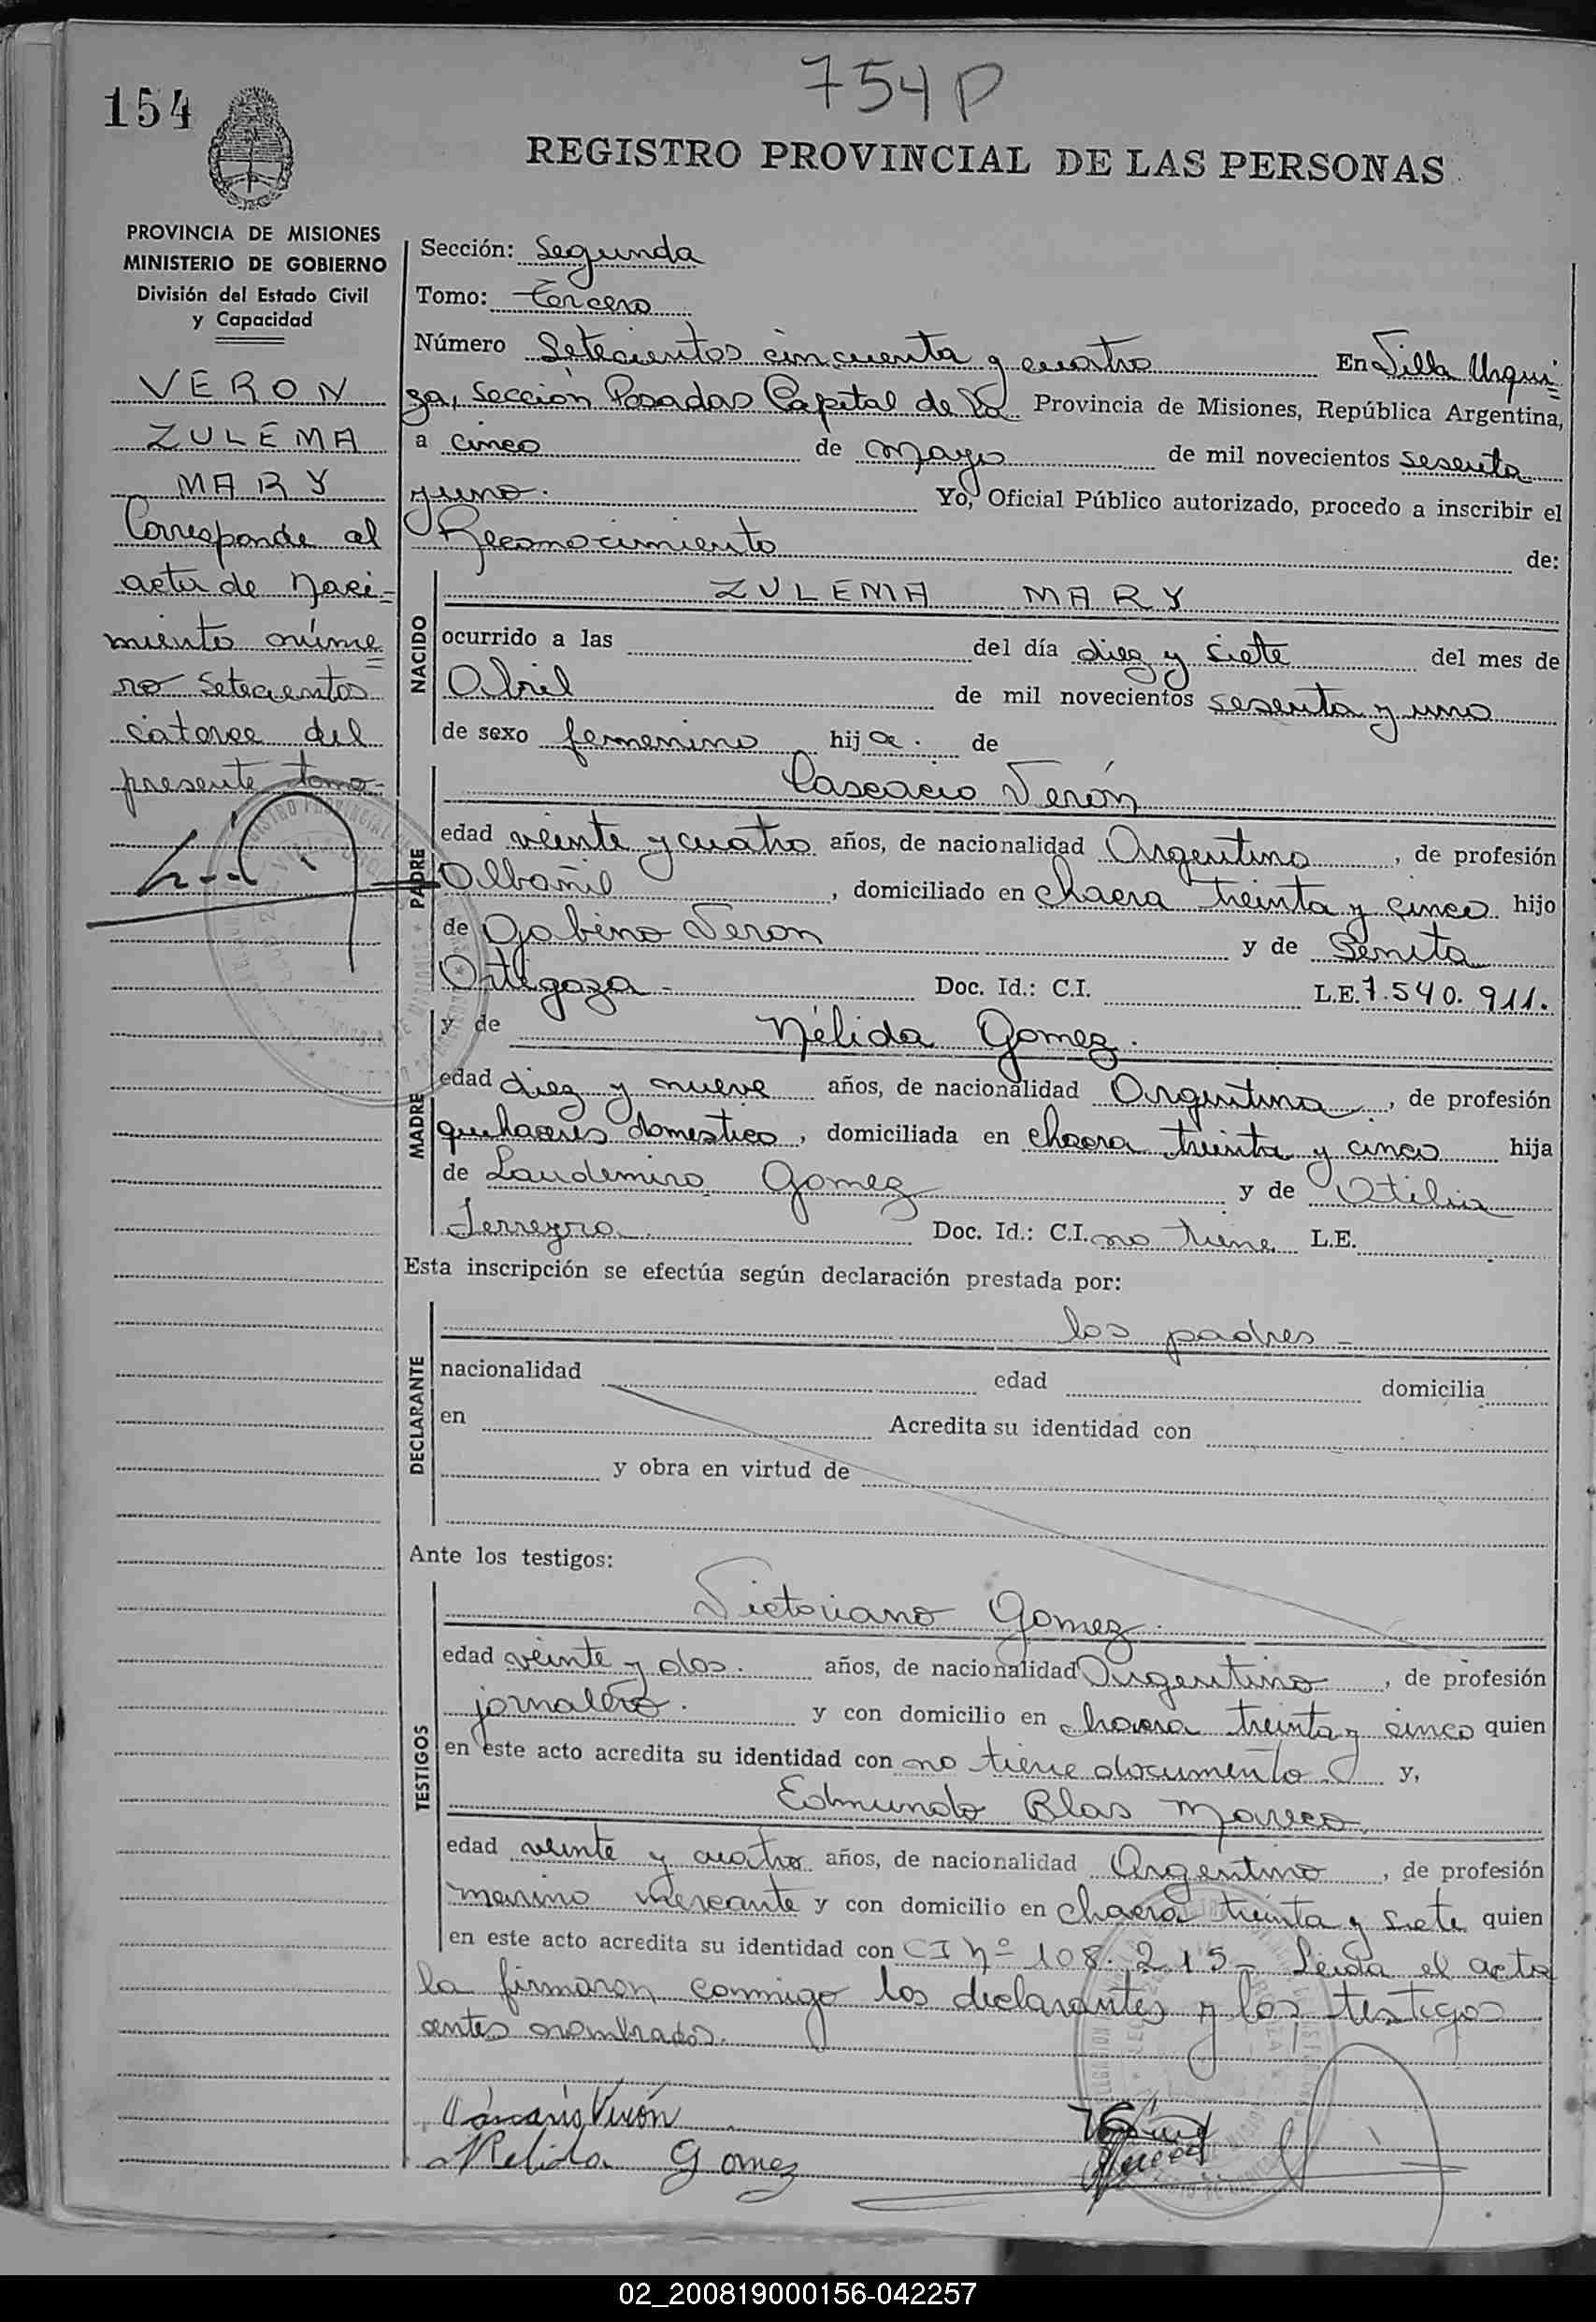 754P
154
REGISTRO PROVINCIAL DE LAS PERSONAS
PROVINCIA DE MISIONES
MINISTERIO DE GOBIERNO
División del Estado Civil
y Capacidad
VERON
ZULEMA
MARY
Corresponde al
acta de Naci=
miento núme
ro setecientos
catorce del
presente tomo-
Sección: Segunda
Tomo: Tercero
Número Setecientos cincuenta y cuatro En Villa Urqui=
za, Sección Posadas Capital de la Provincia de Misiones, República Argentina,
a cinco de Mayo de mil novecientos sesenta
y uno. Yo, Oficial Público autorizado, procedo a inscribir el
Reconocimiento de:
NACIDO
ZULEMA MARY
ocurrido a las del día diez y siete del mes de
Abril de mil novecientos sesenta y uno
de sexo femenino hija. de
PADRE
Verón
edad veinte y cuatro años, de nacionalidad Argentino, de profesión
Albañil, domiciliado en chacra treinta y cinco hijo
de Gabino Veron y de Benita
Ortigoza - Doc. Id.: C.I. L.E. 7.540.911.
MADRE
y de Nélida Gomez.
edad diez y nueve años, de nacionalidad Argentina, de profesión
quehaceres domestico, domiciliada en chacra treinta y cinco hija
de Laudemiro Gomez y de Otilia
Ferreyra. Doc. Id.: C.I. no tiene L.E.
Esta inscripción se efectúa según declaración prestada por:
DECLARANTE
los padres -
nacionalidad edad domicilia
en Acredita su identidad con
y obra en virtud de
Ante los testigos:
TESTIGOS
Victoriano Gomez.
edad veinte y dos. años, de nacionalidad Argentino, de profesión
jornalero. y con domicilio en chacra treinta y cinco quien
en este acto acredita su identidad con no tiene documento y,
Edmundo Blas Mareco.
edad veinte y cuatro años, de nacionalidad Argentino, de profesión
marino mercante y con domicilio en chacra treinta y siete quien
en este acto acredita su identidad con CI Nº 108.215 - Leida el acta
la firmaron conmigo los declarantes y los testigos
antes nombrados.
Verón
Nelida Gomez
02_200819000156-042257